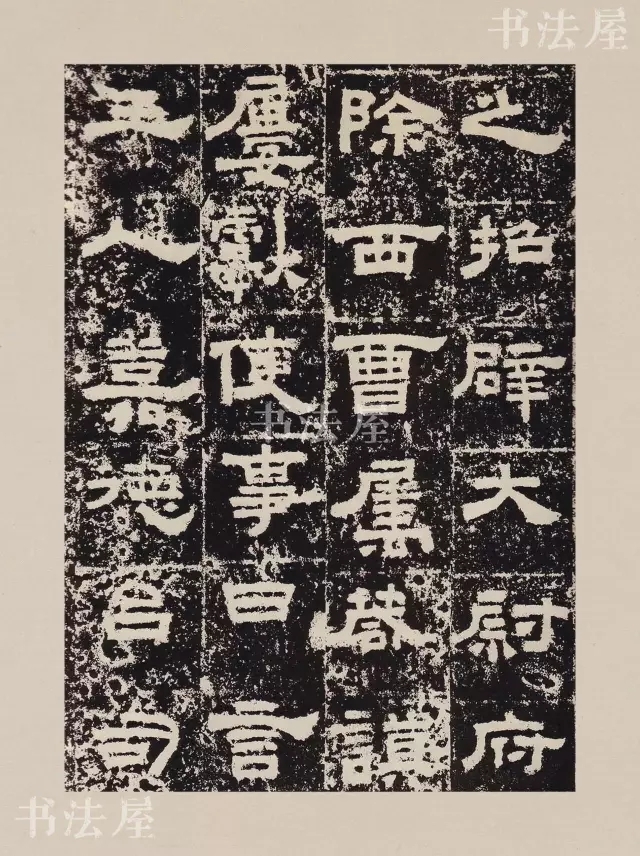 之招辟大尉府
除西曹屬謨
屢獻使事日言
王人嘉德
书法屋
书法屋
书法屋